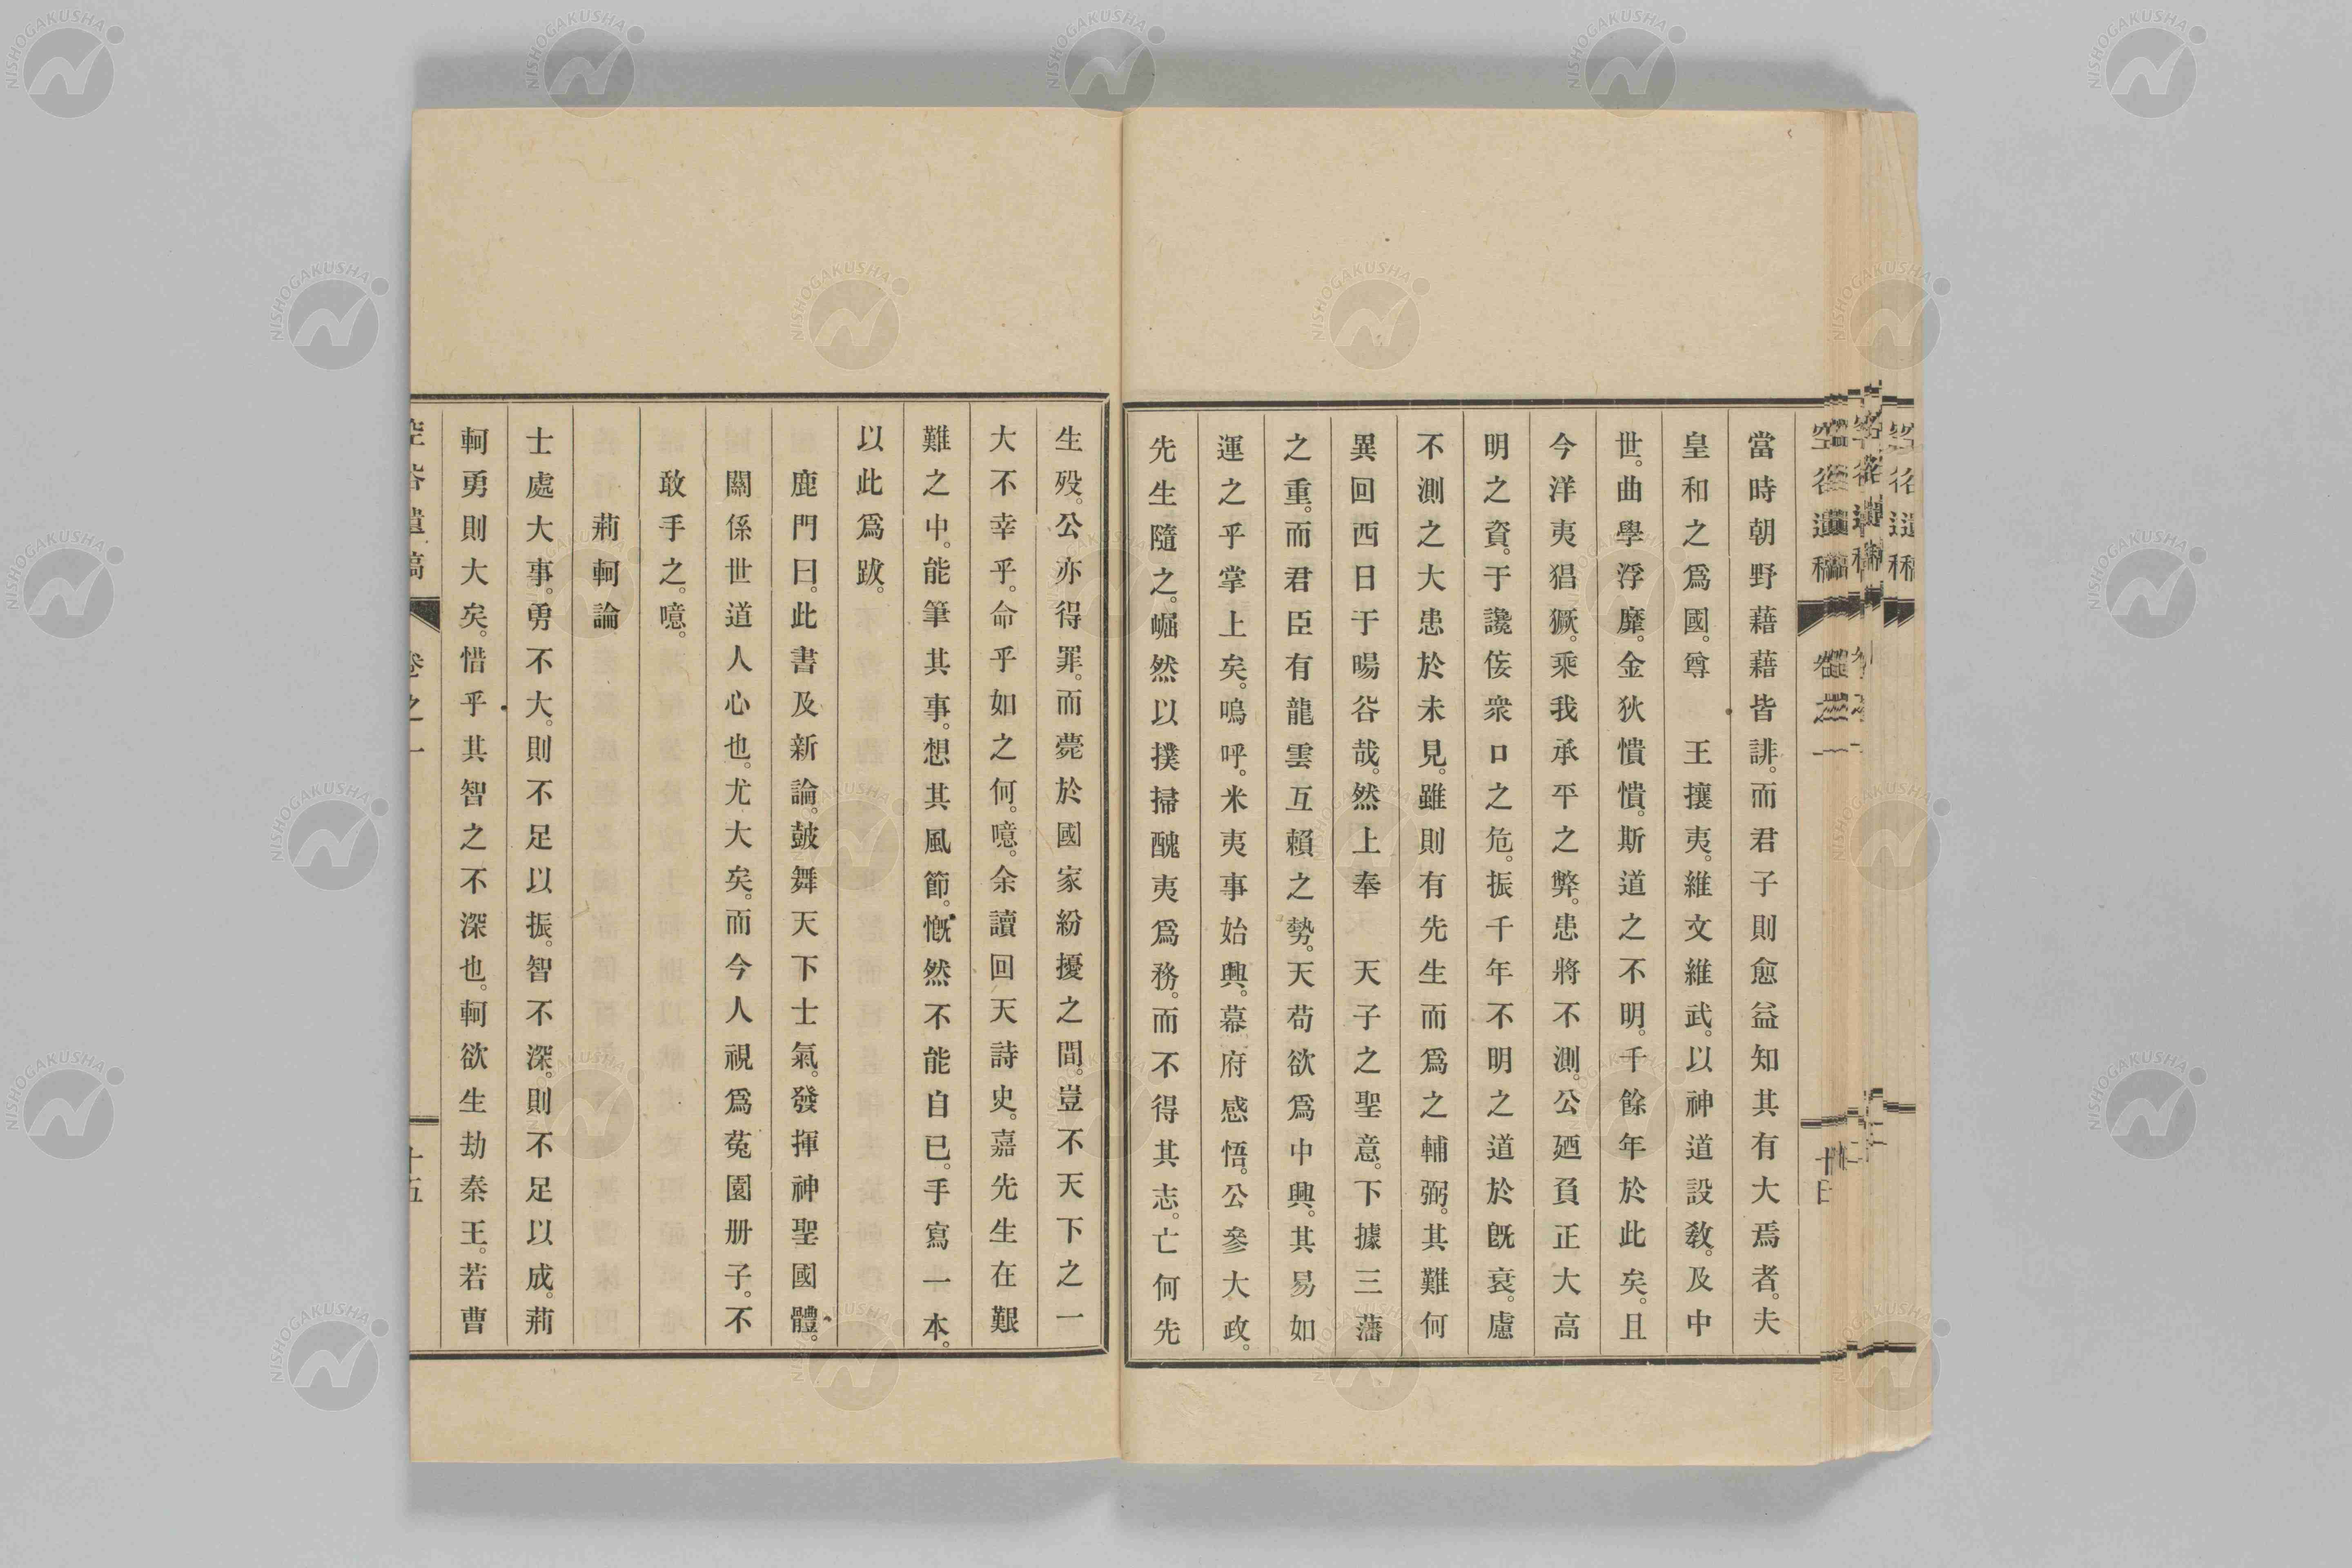 當時朝野藉藉皆誹。而君子則愈益知其有大焉者。夫
皇和之爲國。尊　王攘夷。維文維武。以神道設敎。及中
世。曲學浮靡。金狄憒憒。斯道之不明。千餘年於此矣。且
今洋夷猖獗。乘我承平之弊。患將不測。公廼負正大高
明之資。于讒侫衆口之危。振千年不明之道於既衰。慮
不測之大患於未見。雖則有先生而爲之輔弼。其難何
異回西日于暘谷哉。然上奉　天子之聖意。下據三藩
之重。而君臣有龍雲互賴之勢。天苟欲爲中興。其易如
運之乎掌上矣。嗚呼。米夷事始興。幕府感悟。公參大政。
先生隨之。崛然以撲掃醜夷爲務。而不得其志。亡何先
生殁。公亦得罪。而薨於國家紛擾之間。豈不天下之一
大不幸乎。命乎如之何。噫。余讀回天詩史。嘉先生在艱
難之中。能筆其事。想其風節。慨然不能自已。手寫一本。
以此爲跋。
鹿門曰。此書及新論。鼓舞天下士氣。發揮神聖國體。
關係世道人心也。尤大矣。而今人視爲菟園册子。不
敢手之。噫。
荊軻論
士處大事。勇不大。則不足以振。智不深。則不足以成。荊
軻勇則大矣。惜乎其智之不深也。軻欲生劫秦王。若曹
空谷遺稿　卷之一　十五
NISHOGAKUSHA